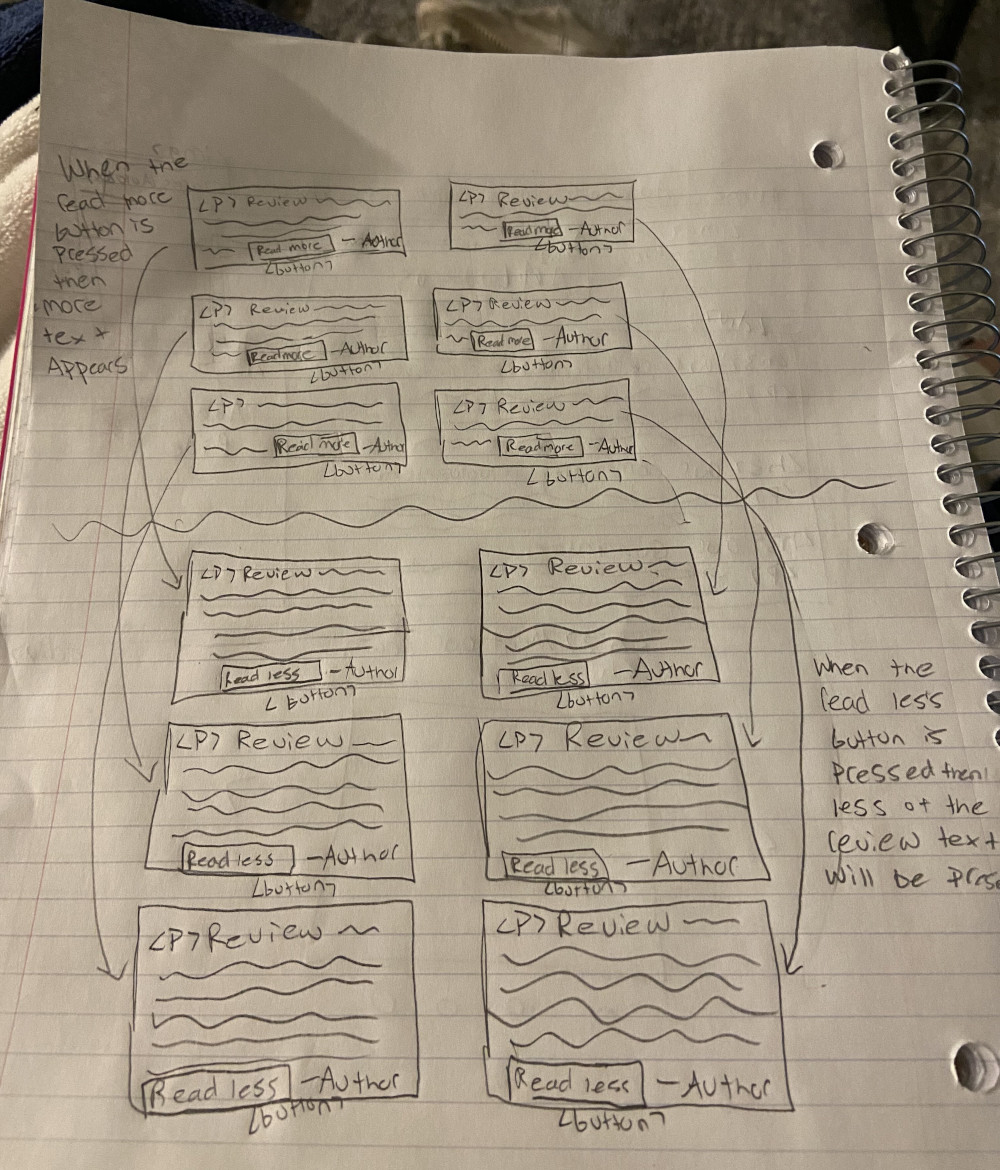 When the
read more
button is
pressed
then
more
text
Appears
<P> Review
Read more - Author
<button>
<P> Review
Read more - Author
<button>
<P> Review
Read more - Author
<button>
<P> Review
Read more - Author
<button>
<P>
Read more - Author
<button>
<P> Review
Read more - Author
<button>
<P> Review
Read less - Author
<button>
<P> Review
Read less - Author
<button>
<P> Review
Read less - Author
<button>
<P> Review
Read less - Author
<button>
<P> Review
Read less - Author
<button>
<P> Review
Read less - Author
<button>
When the
read less
button is
pressed then
less of the
review text
will be